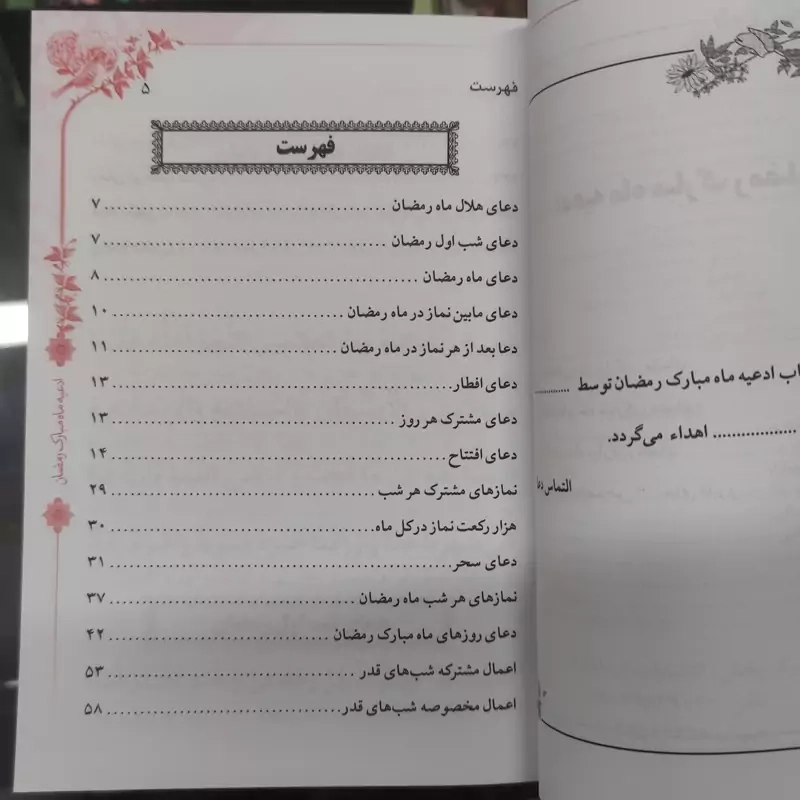 فهرست ۵
فهرست
دعای هلال ماه رمضان ........ ۷
دعای شب اول رمضان ........ ۷
دعای ماه رمضان ........ ۸
دعای مابین نماز در ماه رمضان ........ ۱۰
دعا بعد از هر نماز در ماه رمضان ........ ۱۱
دعای افطار ........ ۱۳
دعای مشترک هر روز ........ ۱۳
دعای افتتاح ........ ۱۴
نمازهای مشترک هر شب ........ ۲۹
هزار رکعت نماز درکل ماه ........ ۳۰
دعای سحر ........ ۳۱
نمازهای هر شب ماه رمضان ........ ۳۷
دعای روزهای ماه مبارک رمضان ........ ۴۲
اعمال مشترکه شب‌های قدر ........ ۵۳
اعمال مخصوصه شب‌های قدر ........ ۵۸
ادعیه ماه مبارک رمضان
اب ادعیه ماه مبارک رمضان توسط ............
................. اهداء می‌گردد.
التماس دعا